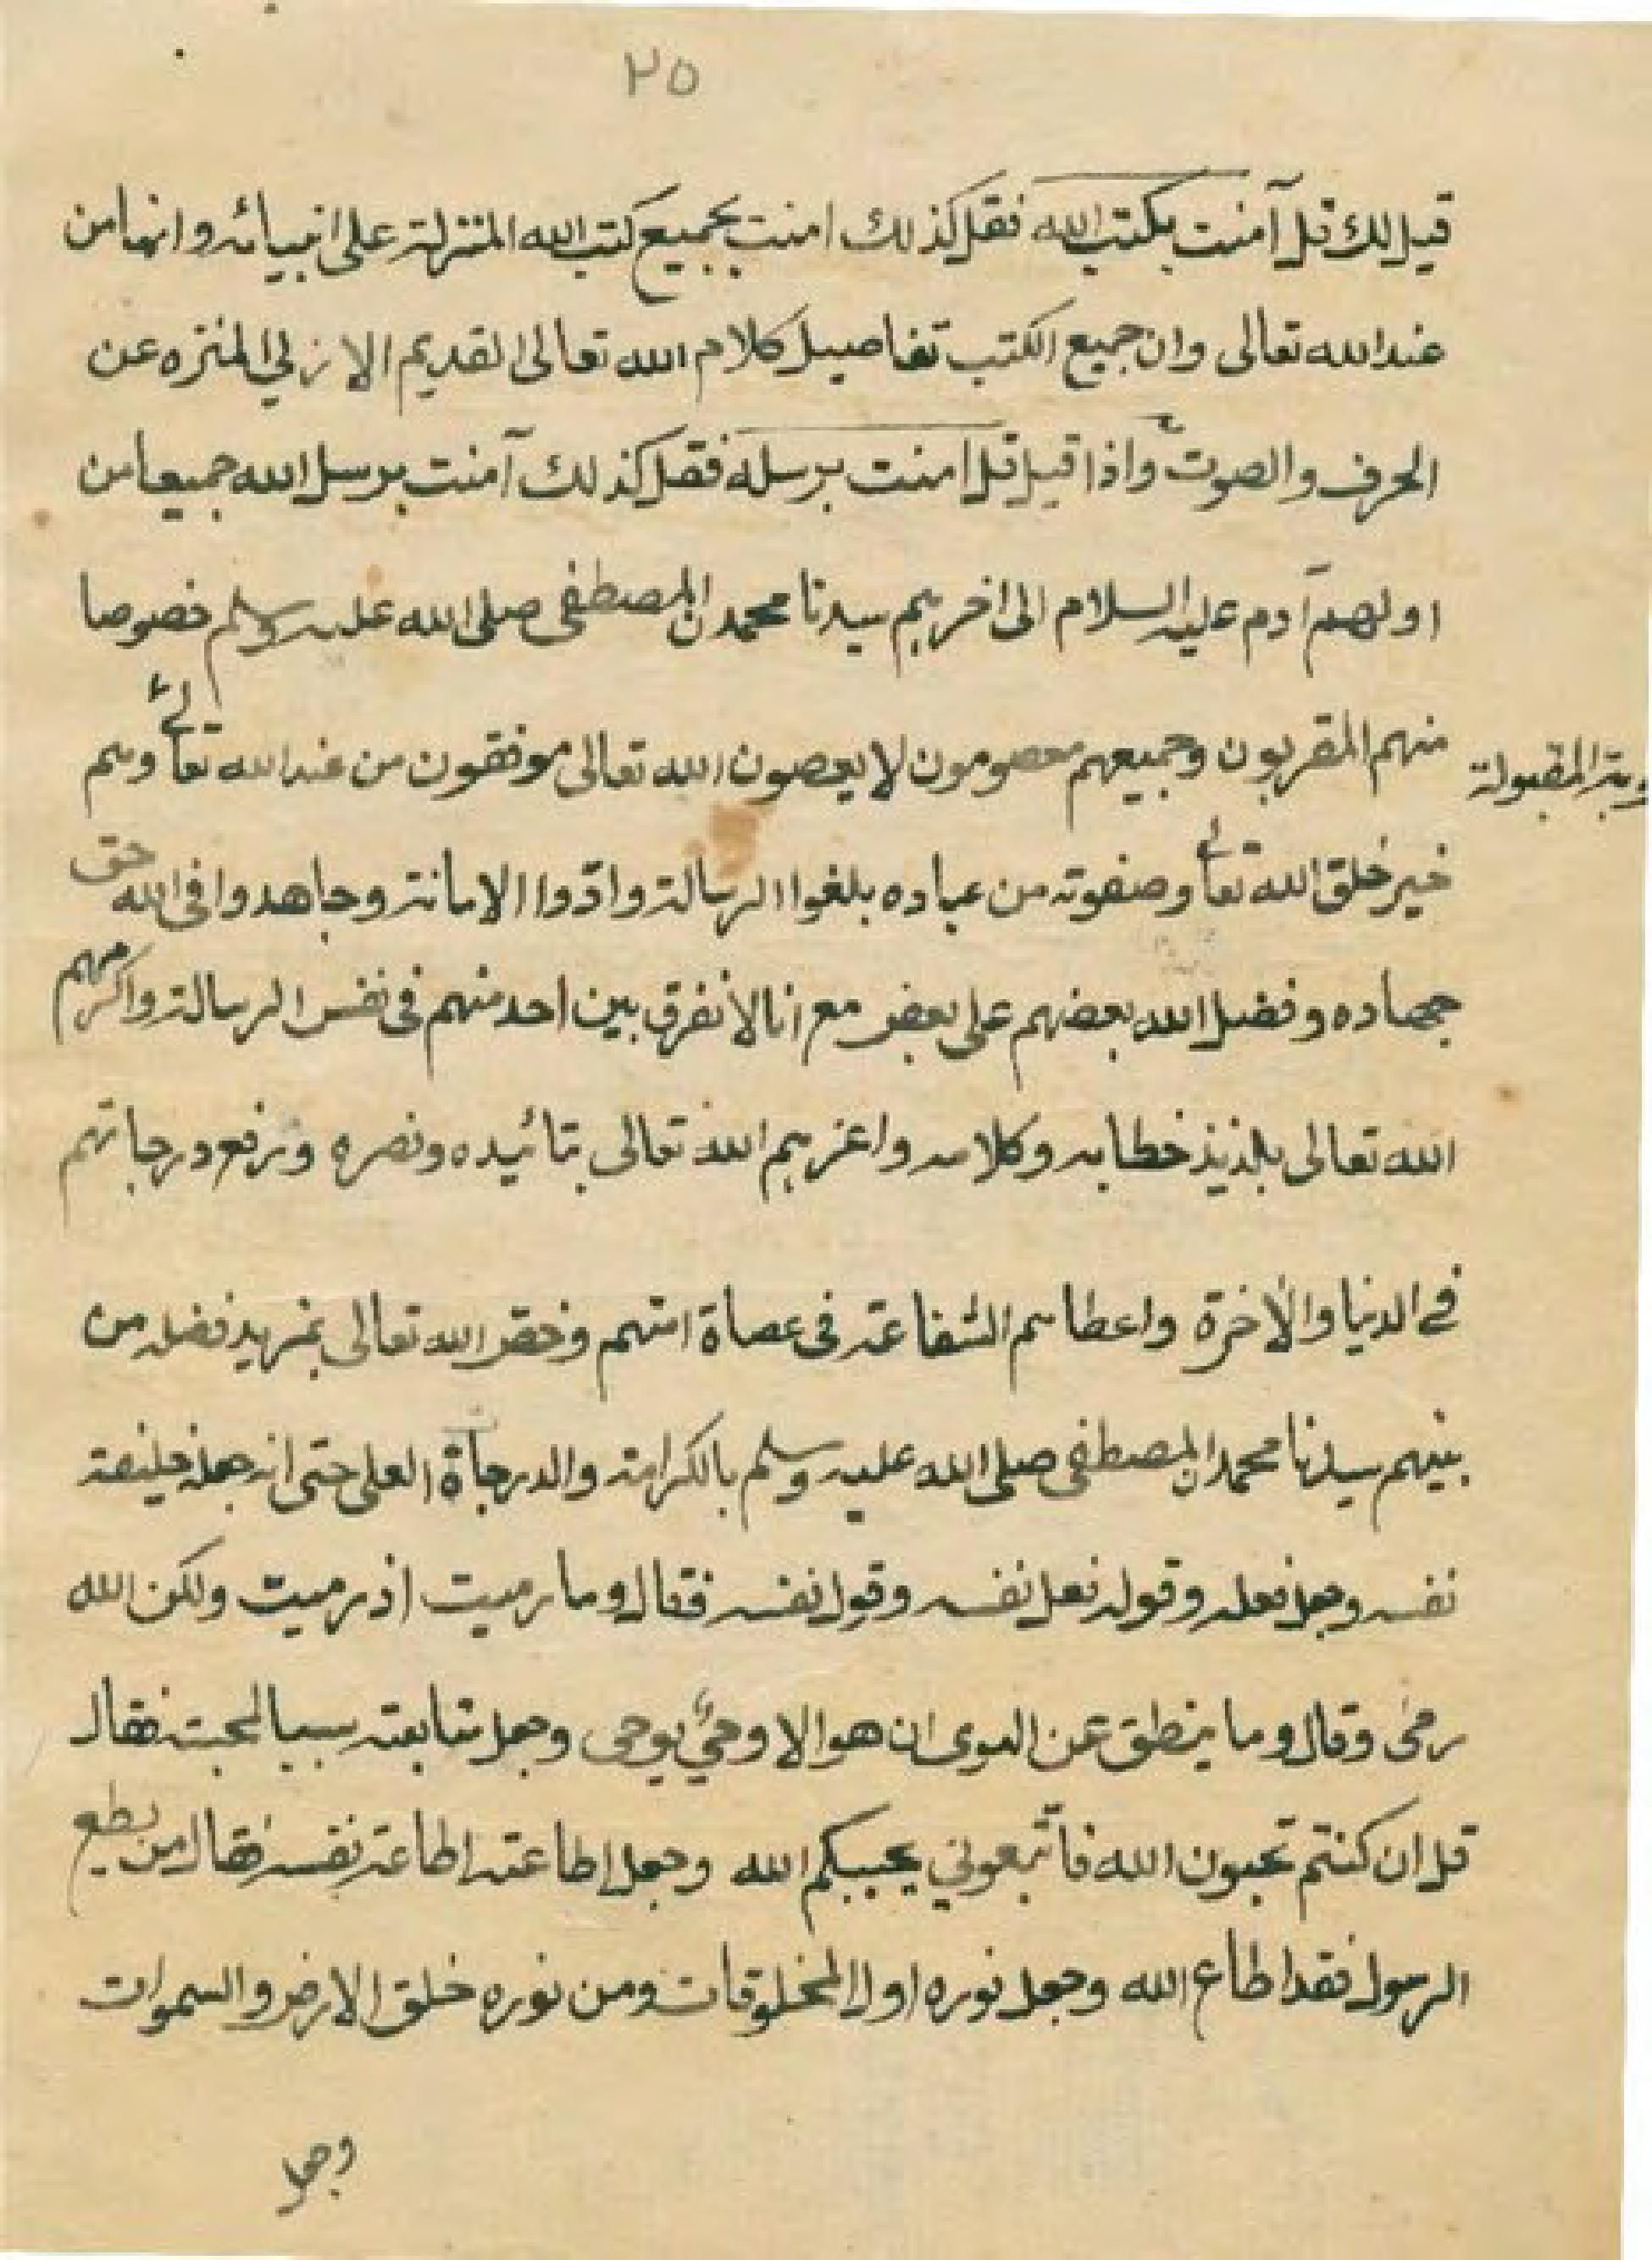 ٢٥
قيل لك قل آمنت بكتب الله فقل كذلك امنت بجميع كتب الله المنزلة على انبيائه وانها من
عند الله تعالى وان جميع الكتب تفاصيل كلام الله تعالى القديم الازلي المنزه عن
الحرف والصوت واذا قيل قل امنت برسله فقل كذلك آمنت برسل الله جميعا من
اولهم آدم عليه السلام الى اخرهم سيدنا محمد المصطفى صلى الله عليه وسلم خصوصا
منهم المقربون وجميعهم معصومون لا يعصون الله تعالى موفقون من عند الله تعالى وهم
المقبولة
خير خلق الله تعالى وصفوته من عباده بلغوا الرسالة وادّوا الامانة وجاهدوا في الله حق
جهاده وفضل الله بعضهم على بعض مع انا لا نفرق بين احد منهم في نفس الرسالة واكرمهم
الله تعالى بلذيذ خطابه وكلامه واعزهم الله تعالى بتائيده ونصره ورفع درجاتهم
في الدنيا والآخرة واعطاهم الشفاعة في عصاة امتهم وخص الله تعالى بمزيد فضله من
بينهم سيدنا محمد المصطفى صلى الله عليه وسلم بالكرامة والدرجاة العلى حتى انه جعله خليفة
نفسه وجعل فعله وقوله فعل نفسه وقول نفسه فقال وما رميت اذ رميت ولكن الله
رمى وقال وما ينطق عن الهوى ان هو الا وحيٌ يوحى وجعل متابعته سببا لمحبته فقال
قل ان كنتم تحبون الله فاتّبعوني يحببكم الله وجعل اطاعته اطاعة نفسه فقال من يطع
الرسول فقد اطاع الله وجعل نوره اول المخلوقات ومن نوره خلق الارض والسموات
وجعل